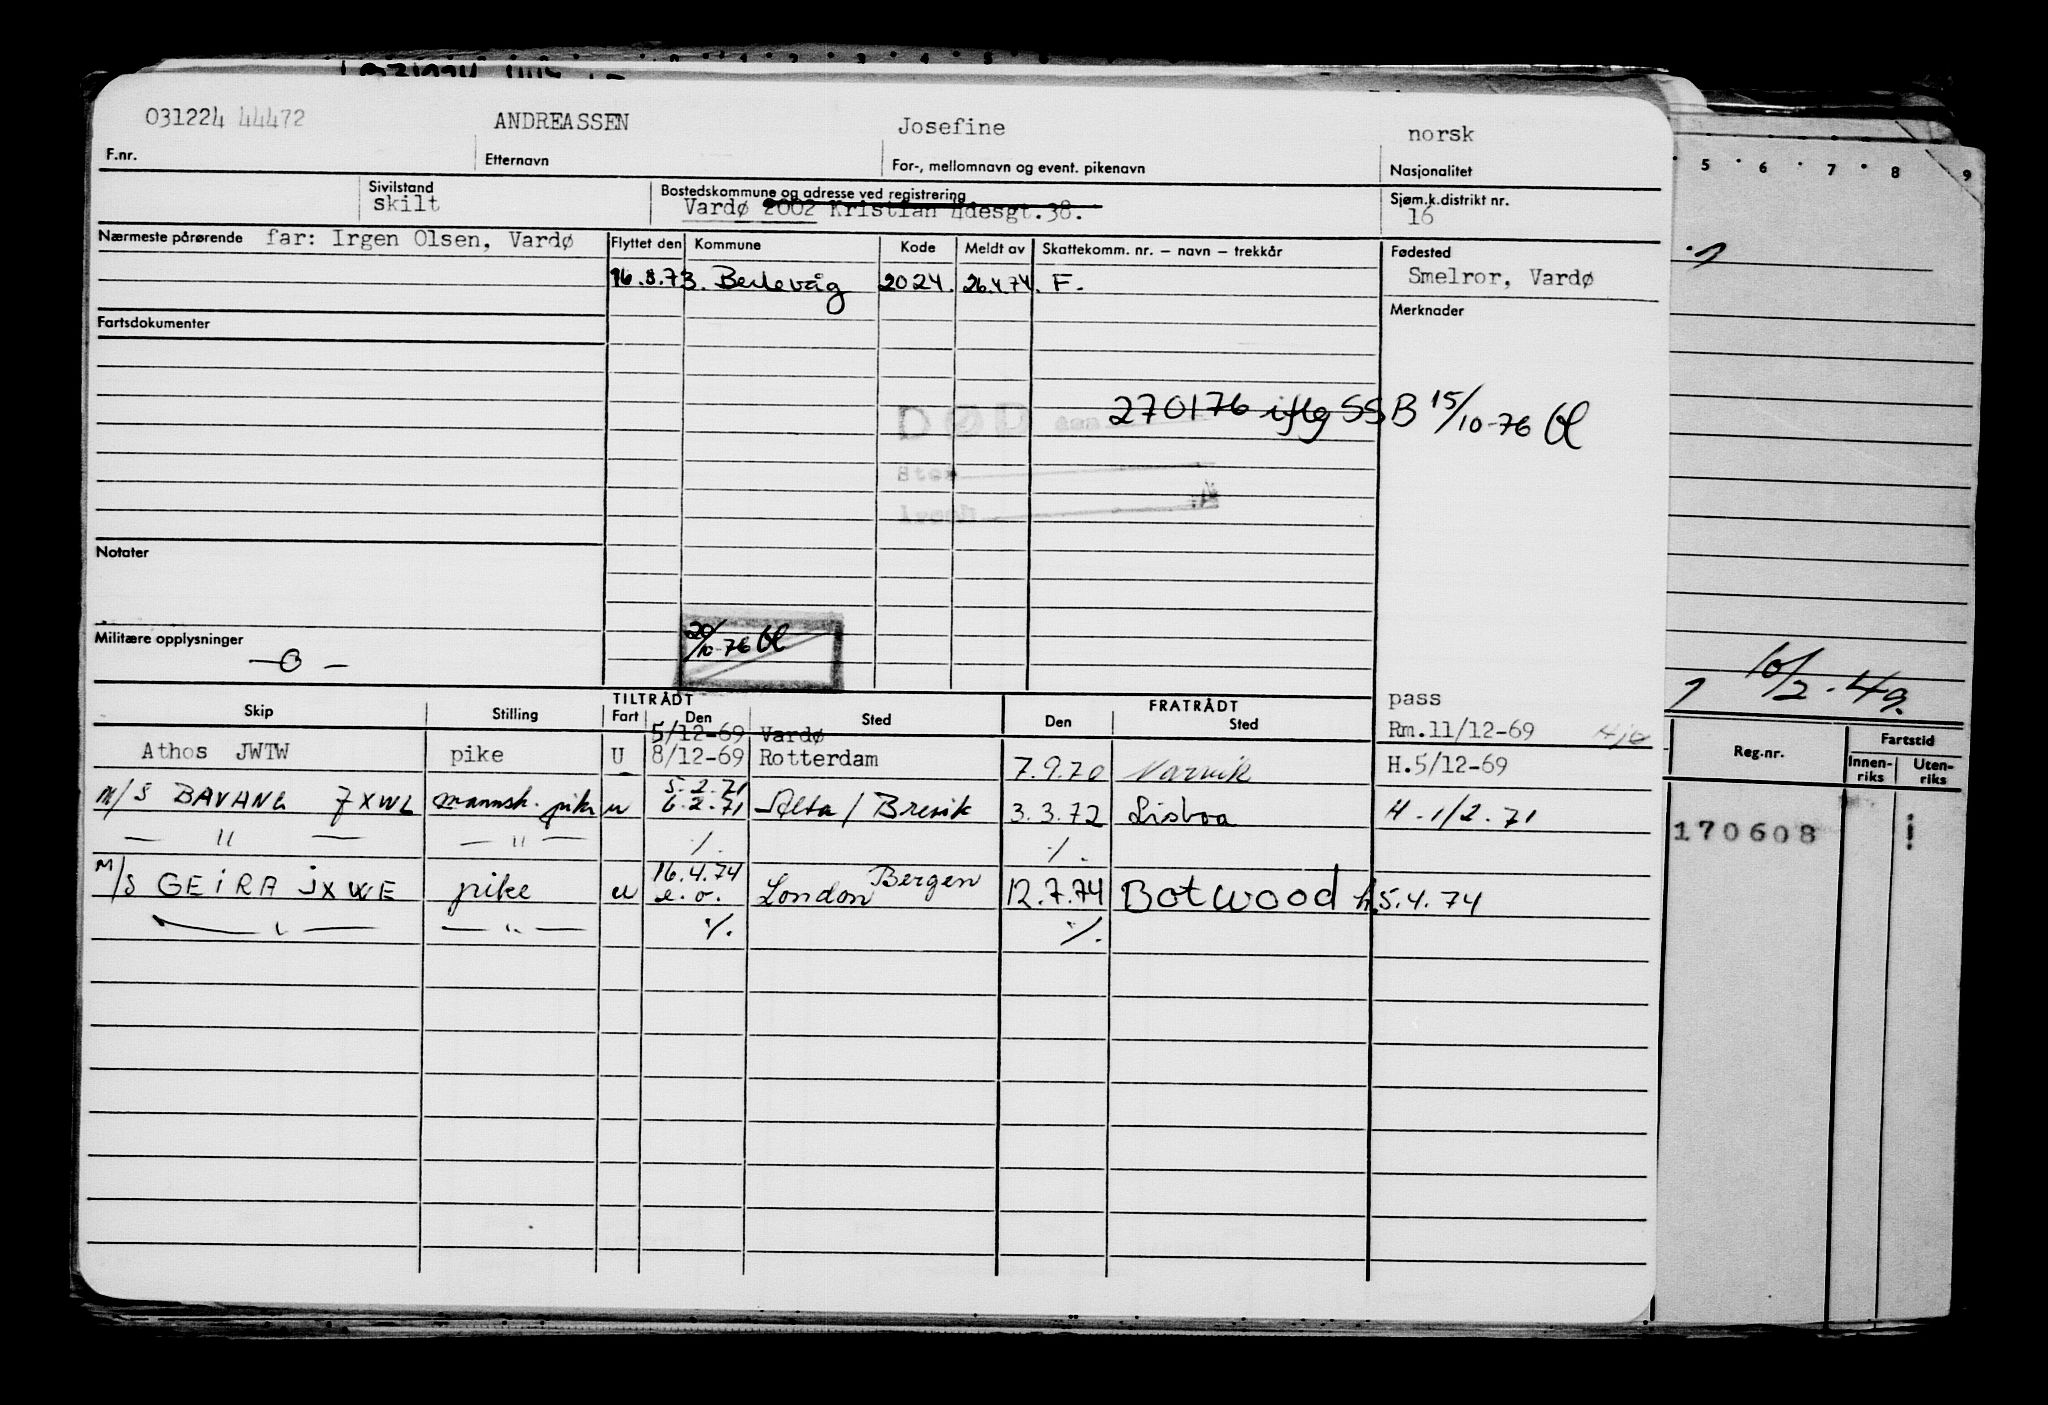 031224 44472 ANDREASSEN Josefine norsk
F.nr. Etternavn For-, mellomnavn og event. pikenavn Nasjonalitet
Sivilstand Bostedskommune og adresse ved registrering Sjøm.k.distrikt nr.
skilt Vardø 2002 Kristian 4desgt.38. 16
Nærmeste pårørende far: Irgen Olsen, Vardø Flyttet den Kommune Kode Meldt av Skattekomm. nr. – navn – trekkår Fødested
16.8.73. Berlevåg 2024. 26.4.74. F. Smelror, Vardø
Fartsdokumenter Merknader
DØD den 270176 iflg SSB 15/10-76
Sted
Notater
Militære opplysninger
— 0 —
20/10-76
TILTRÅDT FRATRÅDT pass
Skip Stilling Fart Den Sted Den Sted Rm.11/12-69
5/12-69 Vardø
Athos JWTW pike U 8/12-69 Rotterdam 7.9.70 Narvik H.5/12-69
5.2.71
M/S BAVANG JXWL mannsk. pike u 6.2.71 Alta / Brevik 3.3.72 Lisboa H. 1/2.71
— " — — " — ./. ./.
16.4.74 Bergen
M/S GEIRA JXWE pike u e.o. London 12.7.74 Botwood H.5.4.74
— " — — " — ./. ./.
5 6 7 8 9
10/2.49.
Reg.nr. Fartstid
Innen-riks Uten-riks
170608